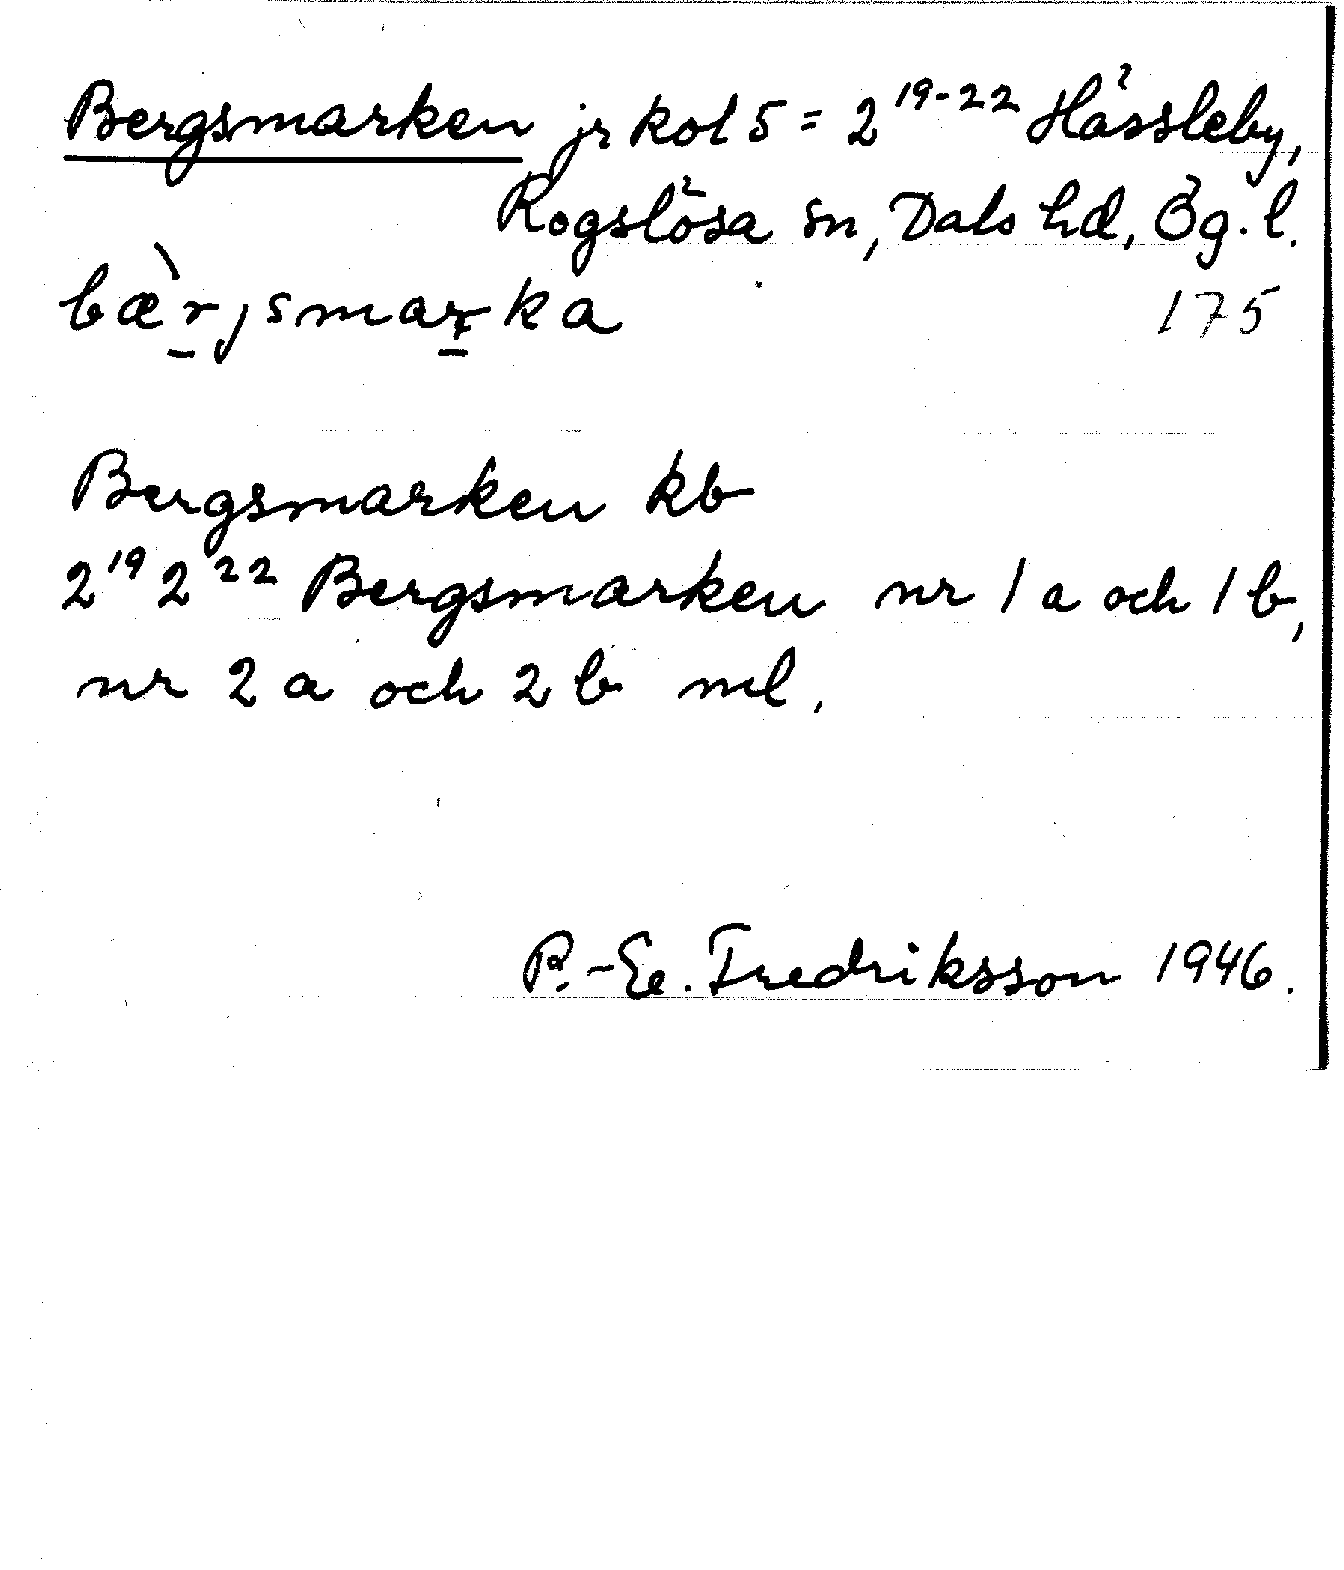 Bergsmarken jr kol 5 = 2¹⁹⁻²² Hässleby,
Rogslösa sn, Dals hd, Ög. l.
bæ̀r̲jsmar̲ka 175
Bergsmarken kb
2¹⁹ 2²² Bergsmarken nr 1 a och 1 b,
nr 2 a och 2 b ml.
P.-E. Fredriksson 1946.